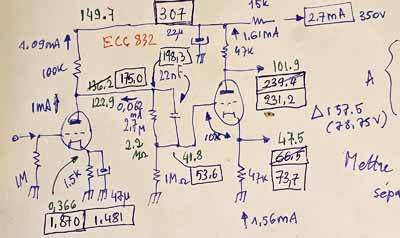 149.7
307
15k
2.7mA
350v
1.09mA
ECC 832
22µ
1.61mA
47k
100k
198,3
22nF
101.9
239.4
231,2
A
176.2
175,0
122.9
0,062
mA
1mA
2,7M
Δ 157.5
(78,75V)
10k
2.2
MΩ
41,8
47.5
66.5
73,7
1M
1.5k
1MΩ
53.6
47k
Mettre
sépa
0,366
47µ
1,870
1,481
1,56mA